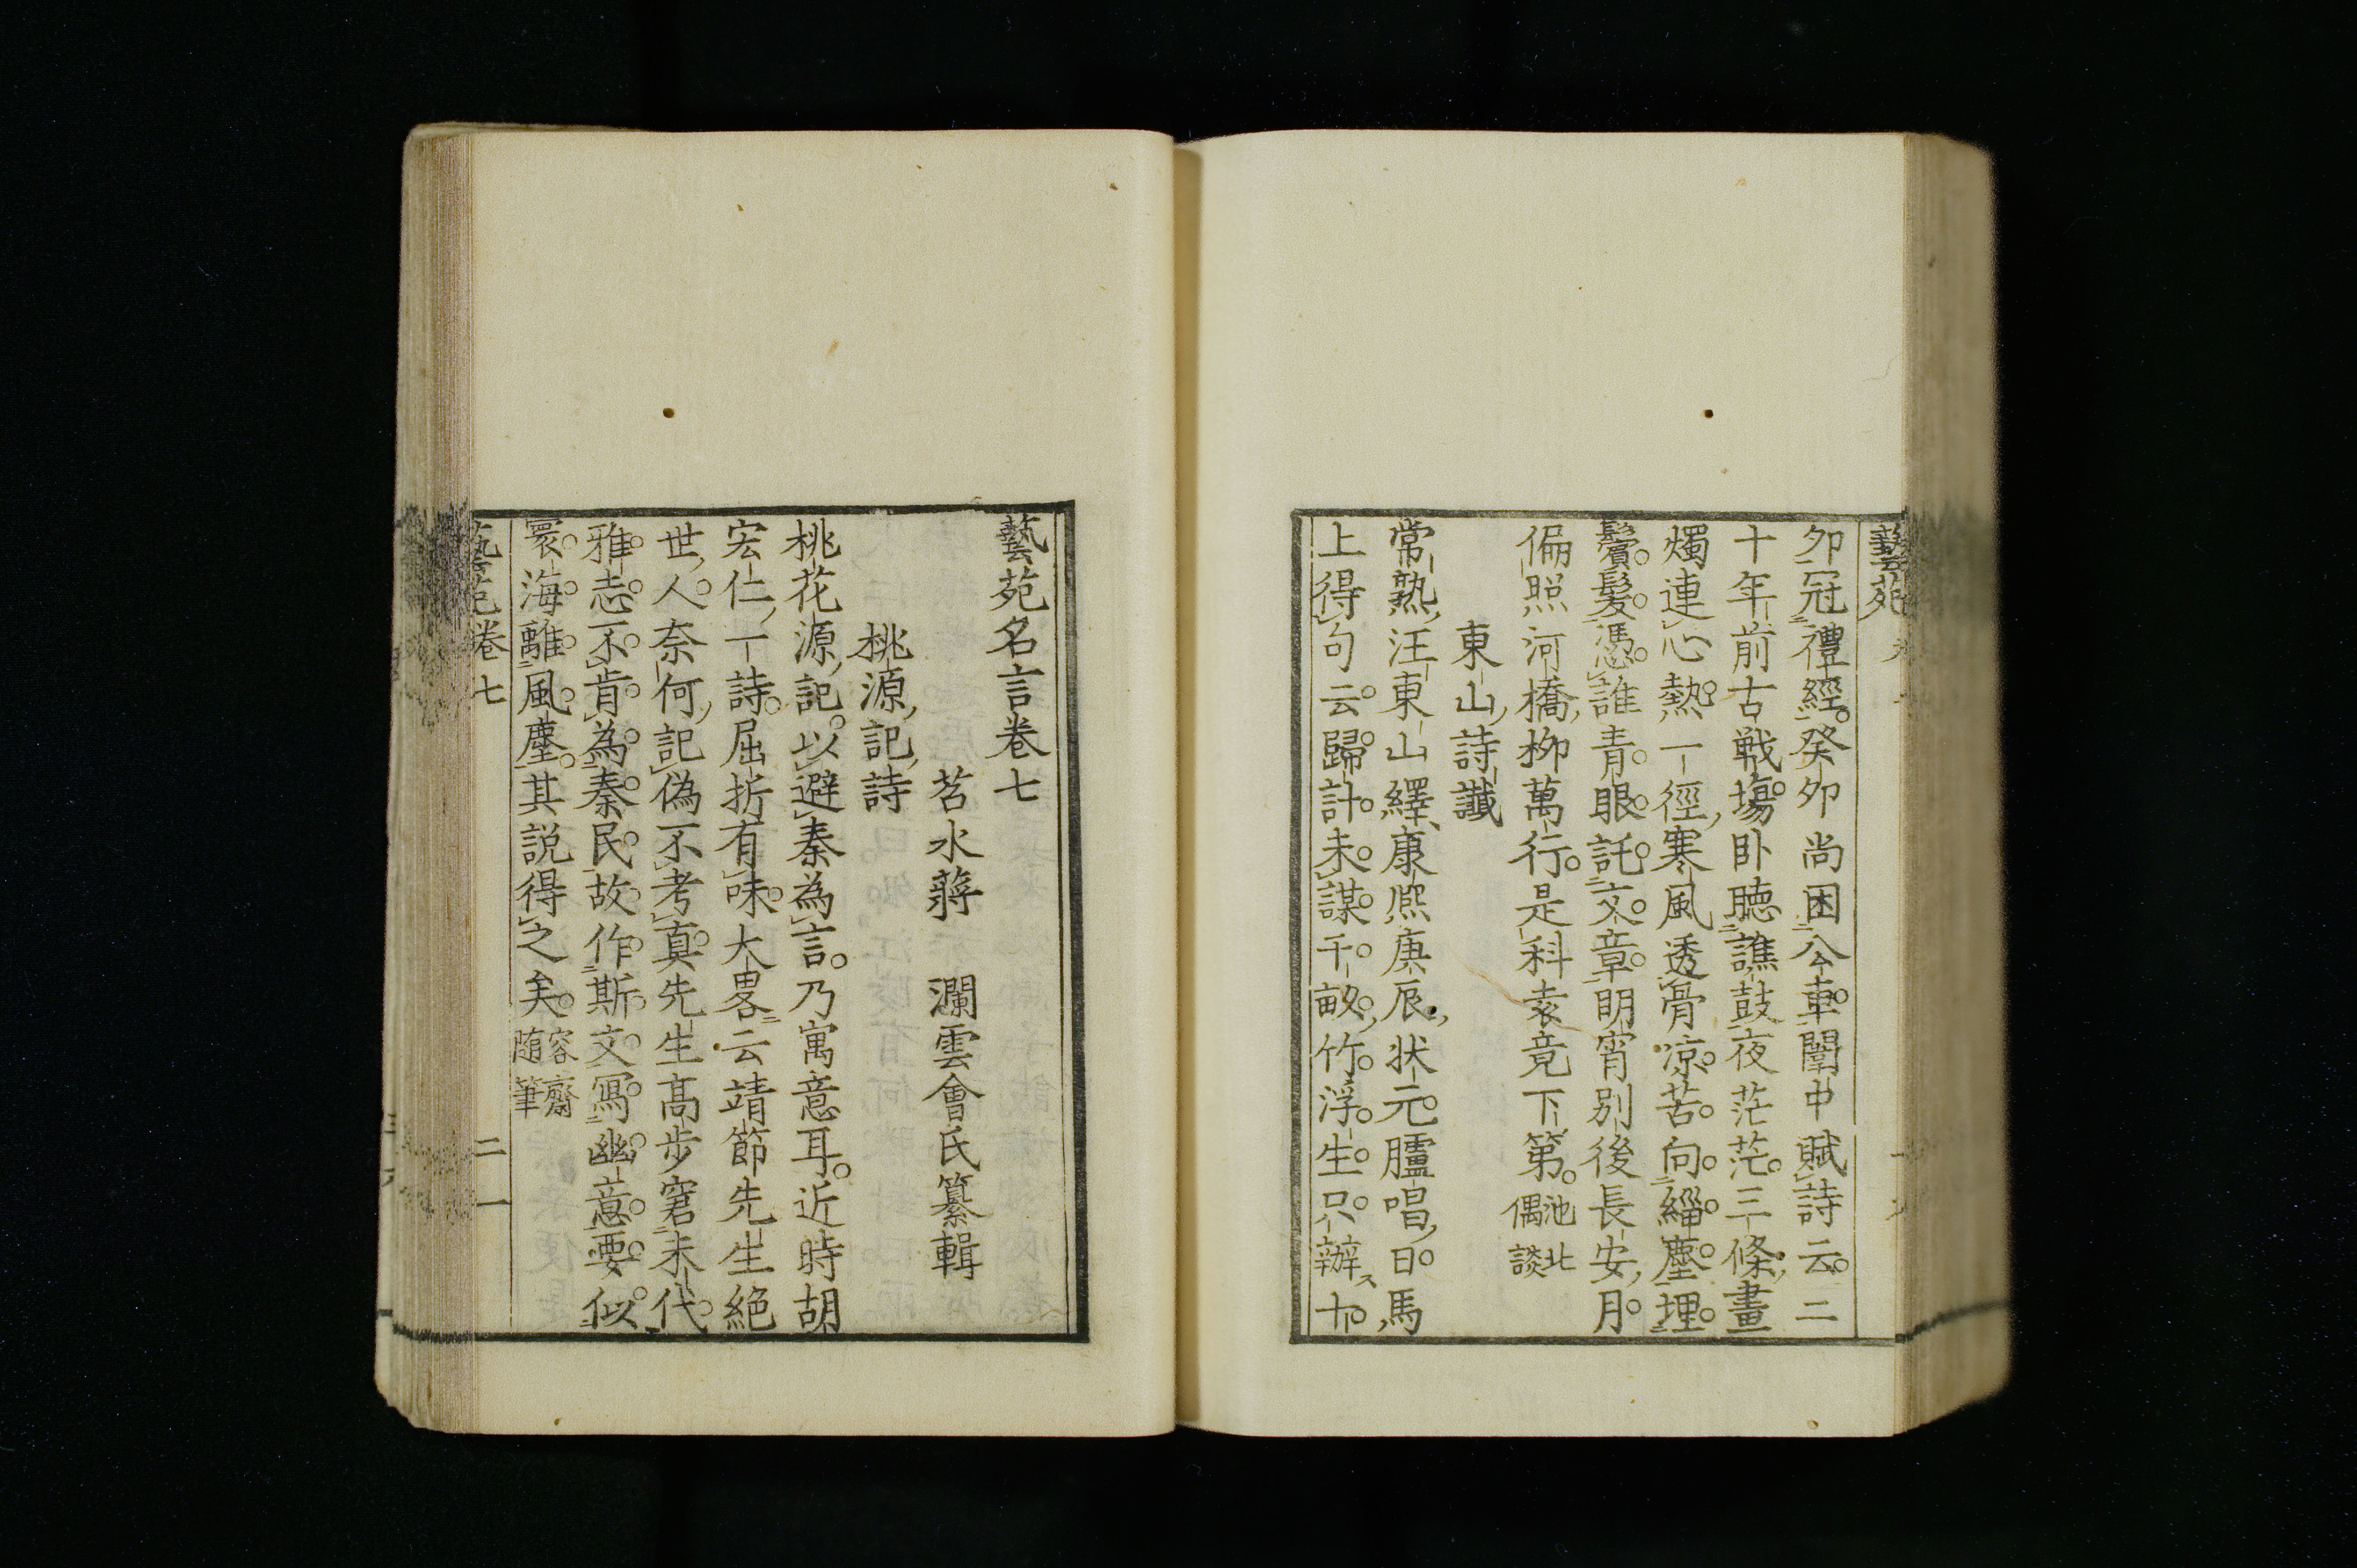 藝苑
夘冠禮經癸夘尚困公車闈中賦詩云二
十年前古戦塲卧聴譙鼓夜茫茫三條畫
燭連心熱一徑寒風透骨凉苦向緇塵埋
鬢髪憑誰青眼託文章明宵別後長安月
偏照河橋栁萬行是科袁竟下第池北偶談
東山詩讖
常熟汪東山繹康熙庚辰状元臚唱日馬
上得句云歸計未謀千畝竹浮生只辦十
藝苑名言卷七
苕水蔣 瀾雲會氏纂輯
桃源記詩
桃花源記以避秦為言乃寓意耳近時胡
宏仁一詩屈折有味大畧云靖節先生絶
世人奈何記偽不考真先生髙步窘末代
雅志不肯為秦民故作斯文寫幽意要似
寰海離風塵其説得之矣容齋随筆
藝苑卷七 二 一